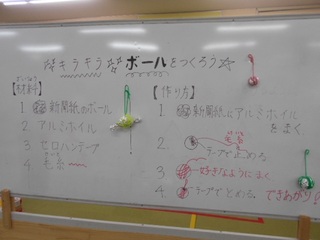 キラキラ ボールをつくろう
【材料】 ざいりょう
1 新聞紙のボール
2 アルミホイル
3 セロハンテープ
4 毛糸
【作り方】
1 新聞紙にアルミホイルをまく。
2. テープで止める。
3 好きなようにまく
4 テープでとめる。できあがり